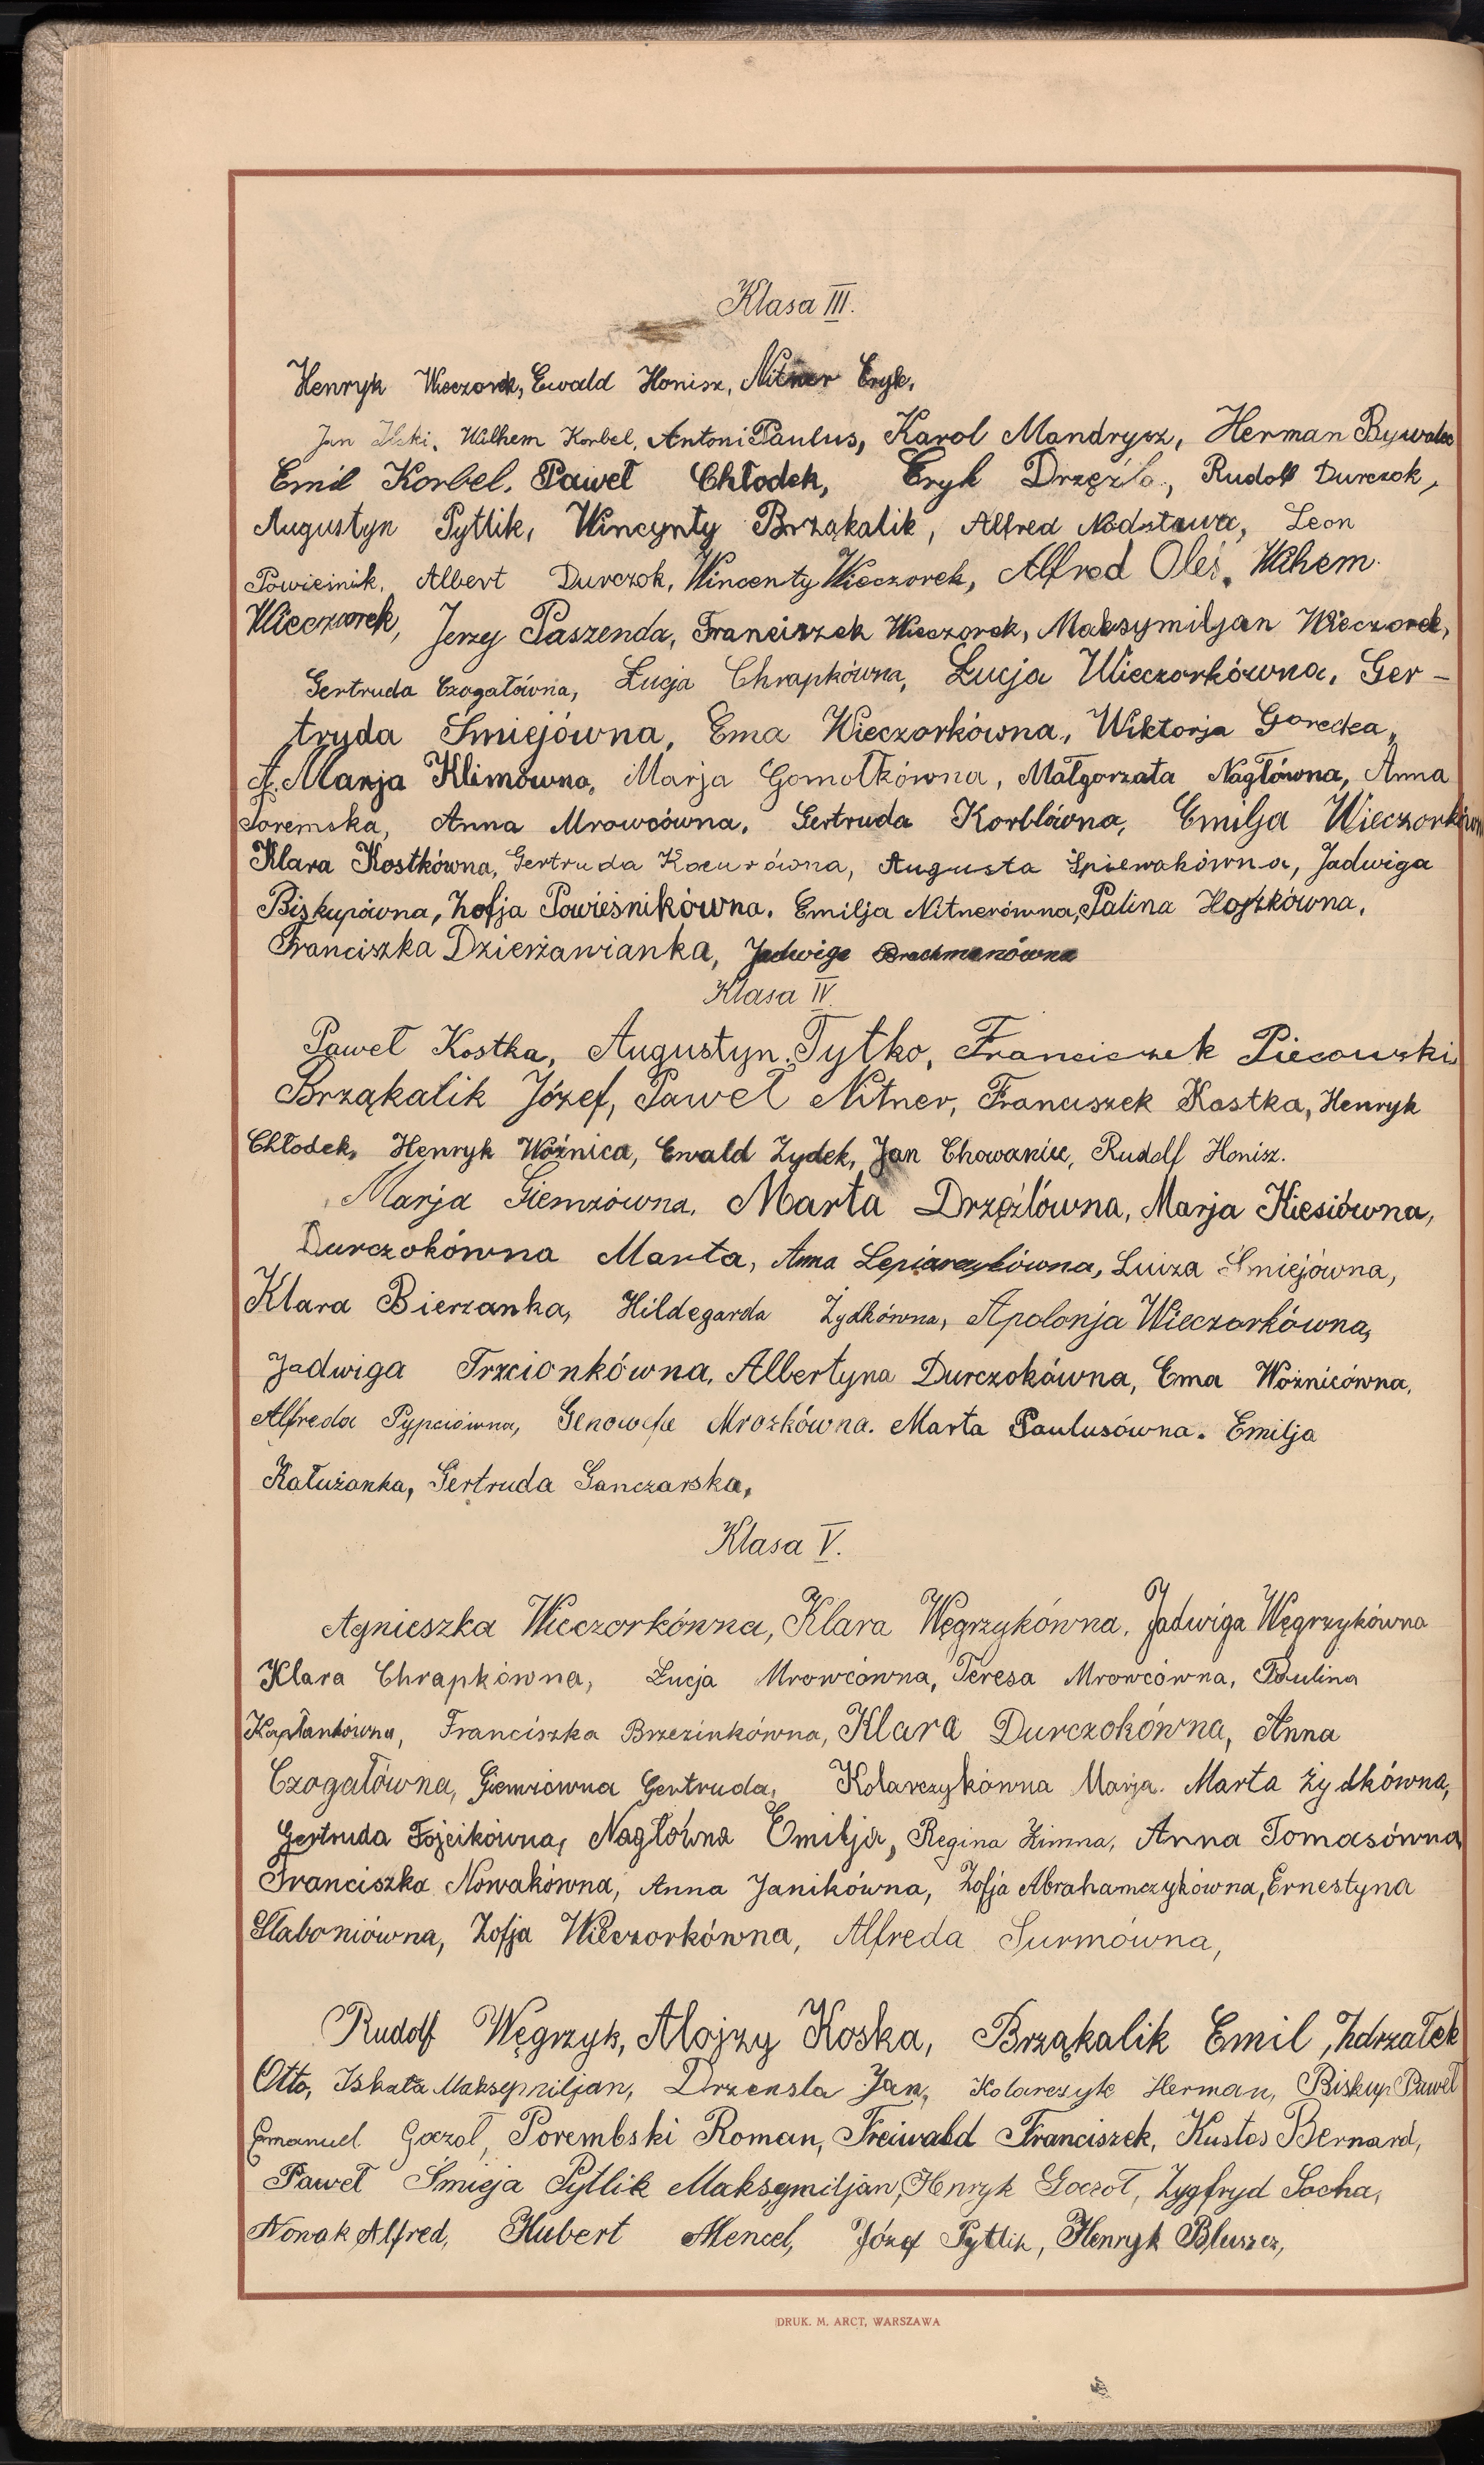 Klasa III.
Henryk Wieczorek, Ewald Honisz, Nitner Eryk,
Jan Wilhem Korbel, Antoni Paulus, Karol Mandrysz, Herman Bywalec
Emil Korbel, Paweł Chłodek, Eryk Drzęźla, Rudolf Durczok,
Augustyn Pytlik, Wincynty Brząkalik, Alfred Nadstawa, Leon
Powieśnik, Albert Durczok, Wincenty Wieczorek, Alfred Oleś, Wilhem
Wieczorek, Jerzy Paszenda, Franciszek Wieczorek, Maksymiljan Wieczorek,
Gertruda Czogałówna, Łucja Chrapkówna, Łucja Wieczorkówna, Ger-
tryda Śmiejówna, Ema Wieczorkówna, Wiktorja Gorecka,
A. Marja Klimówna, Marja Gomołkówna, Małgorzata Nagłówna, Anna
Poremska, Anna Mrowcówna, Gertruda Korblówna, Emilja Wieczorkówna
Klara Kostkówna, Gertruda Kocurówna, Augusta Śpiewakówna, Jadwiga
Biskupówna, Zofja Powieśnikówna, Emilja Nitnerówna, Palina Hojzkówna,
Franciszka Dzierżawianka, Jadwiga Brachmanówna
Klasa IV.
Paweł Kostka, Augustyn Tytko, Franciszek Piecowski
Brząkalik Józef, Paweł Nitner, Franciszek Kostka, Henryk
Chłodek, Henryk Woźnica, Ewald Zydek, Jan Chowaniec, Rudolf Honisz.
Marja Giemzówna, Marta Drzęźlówna, Marja Kiesiówna,
Durczokówna Marta, Anna Lepiarczykówna, Luiza Śmiejówna,
Klara Bierzanka, Hildegarda Żydkówna, Apolonja Wieczorkówna,
Jadwiga Trzcionkówna, Albertyna Durczokówna, Ema Woźnicówna,
Alfreda Pypciówna, Genowefa Mrozkówna. Marta Paulusówna. Emilja
Kałużanka, Gertruda Ganczarska,
Klasa V.
Agnieszka Wieczorkówna, Klara Węgrzykówna, Jadwiga Węgrzykówna
Klara Chrapkówna, Łucja Mrowcówna, Teresa Mrowcówna, Paulina
Kapłankówna, Franciszka Brzezinkówna, Klara Durczokówna, Anna
Czogałówna, Giemzówna Gertruda, Kolarczykówna Marja. Marta Żydkówna,
Gertruda Fojcikówna, Nagłówna Emilja, Regina Zimna, Anna Tomasówna
Franciszka Nowakówna, Anna Janikówna, Zofja Abrahamczykówna, Ernestyna
Słaboniówna, Zofja Wieczorkówna, Alfreda Surmówna,
Rudolf Węgrzyk, Alojzy Koska, Brząkalik Emil, Zdrzałek
Otto, Iskała Maksymiljan, Drzensla Jan, Kolarczyk Herman, Biskup Paweł
Emanuel Goczoł, Porembski Roman, Freiwald Franciszek, Kustos Bernard,
Paweł Śmieja Pytlik Maksymiljan, Henryk Goczoł, Zygfryd Socha,
Nowak Alfred, Hubert Mencel, Józef Pytlik, Henryk Bluszcz,
DRUK. M. ARCT, WARSZAWA